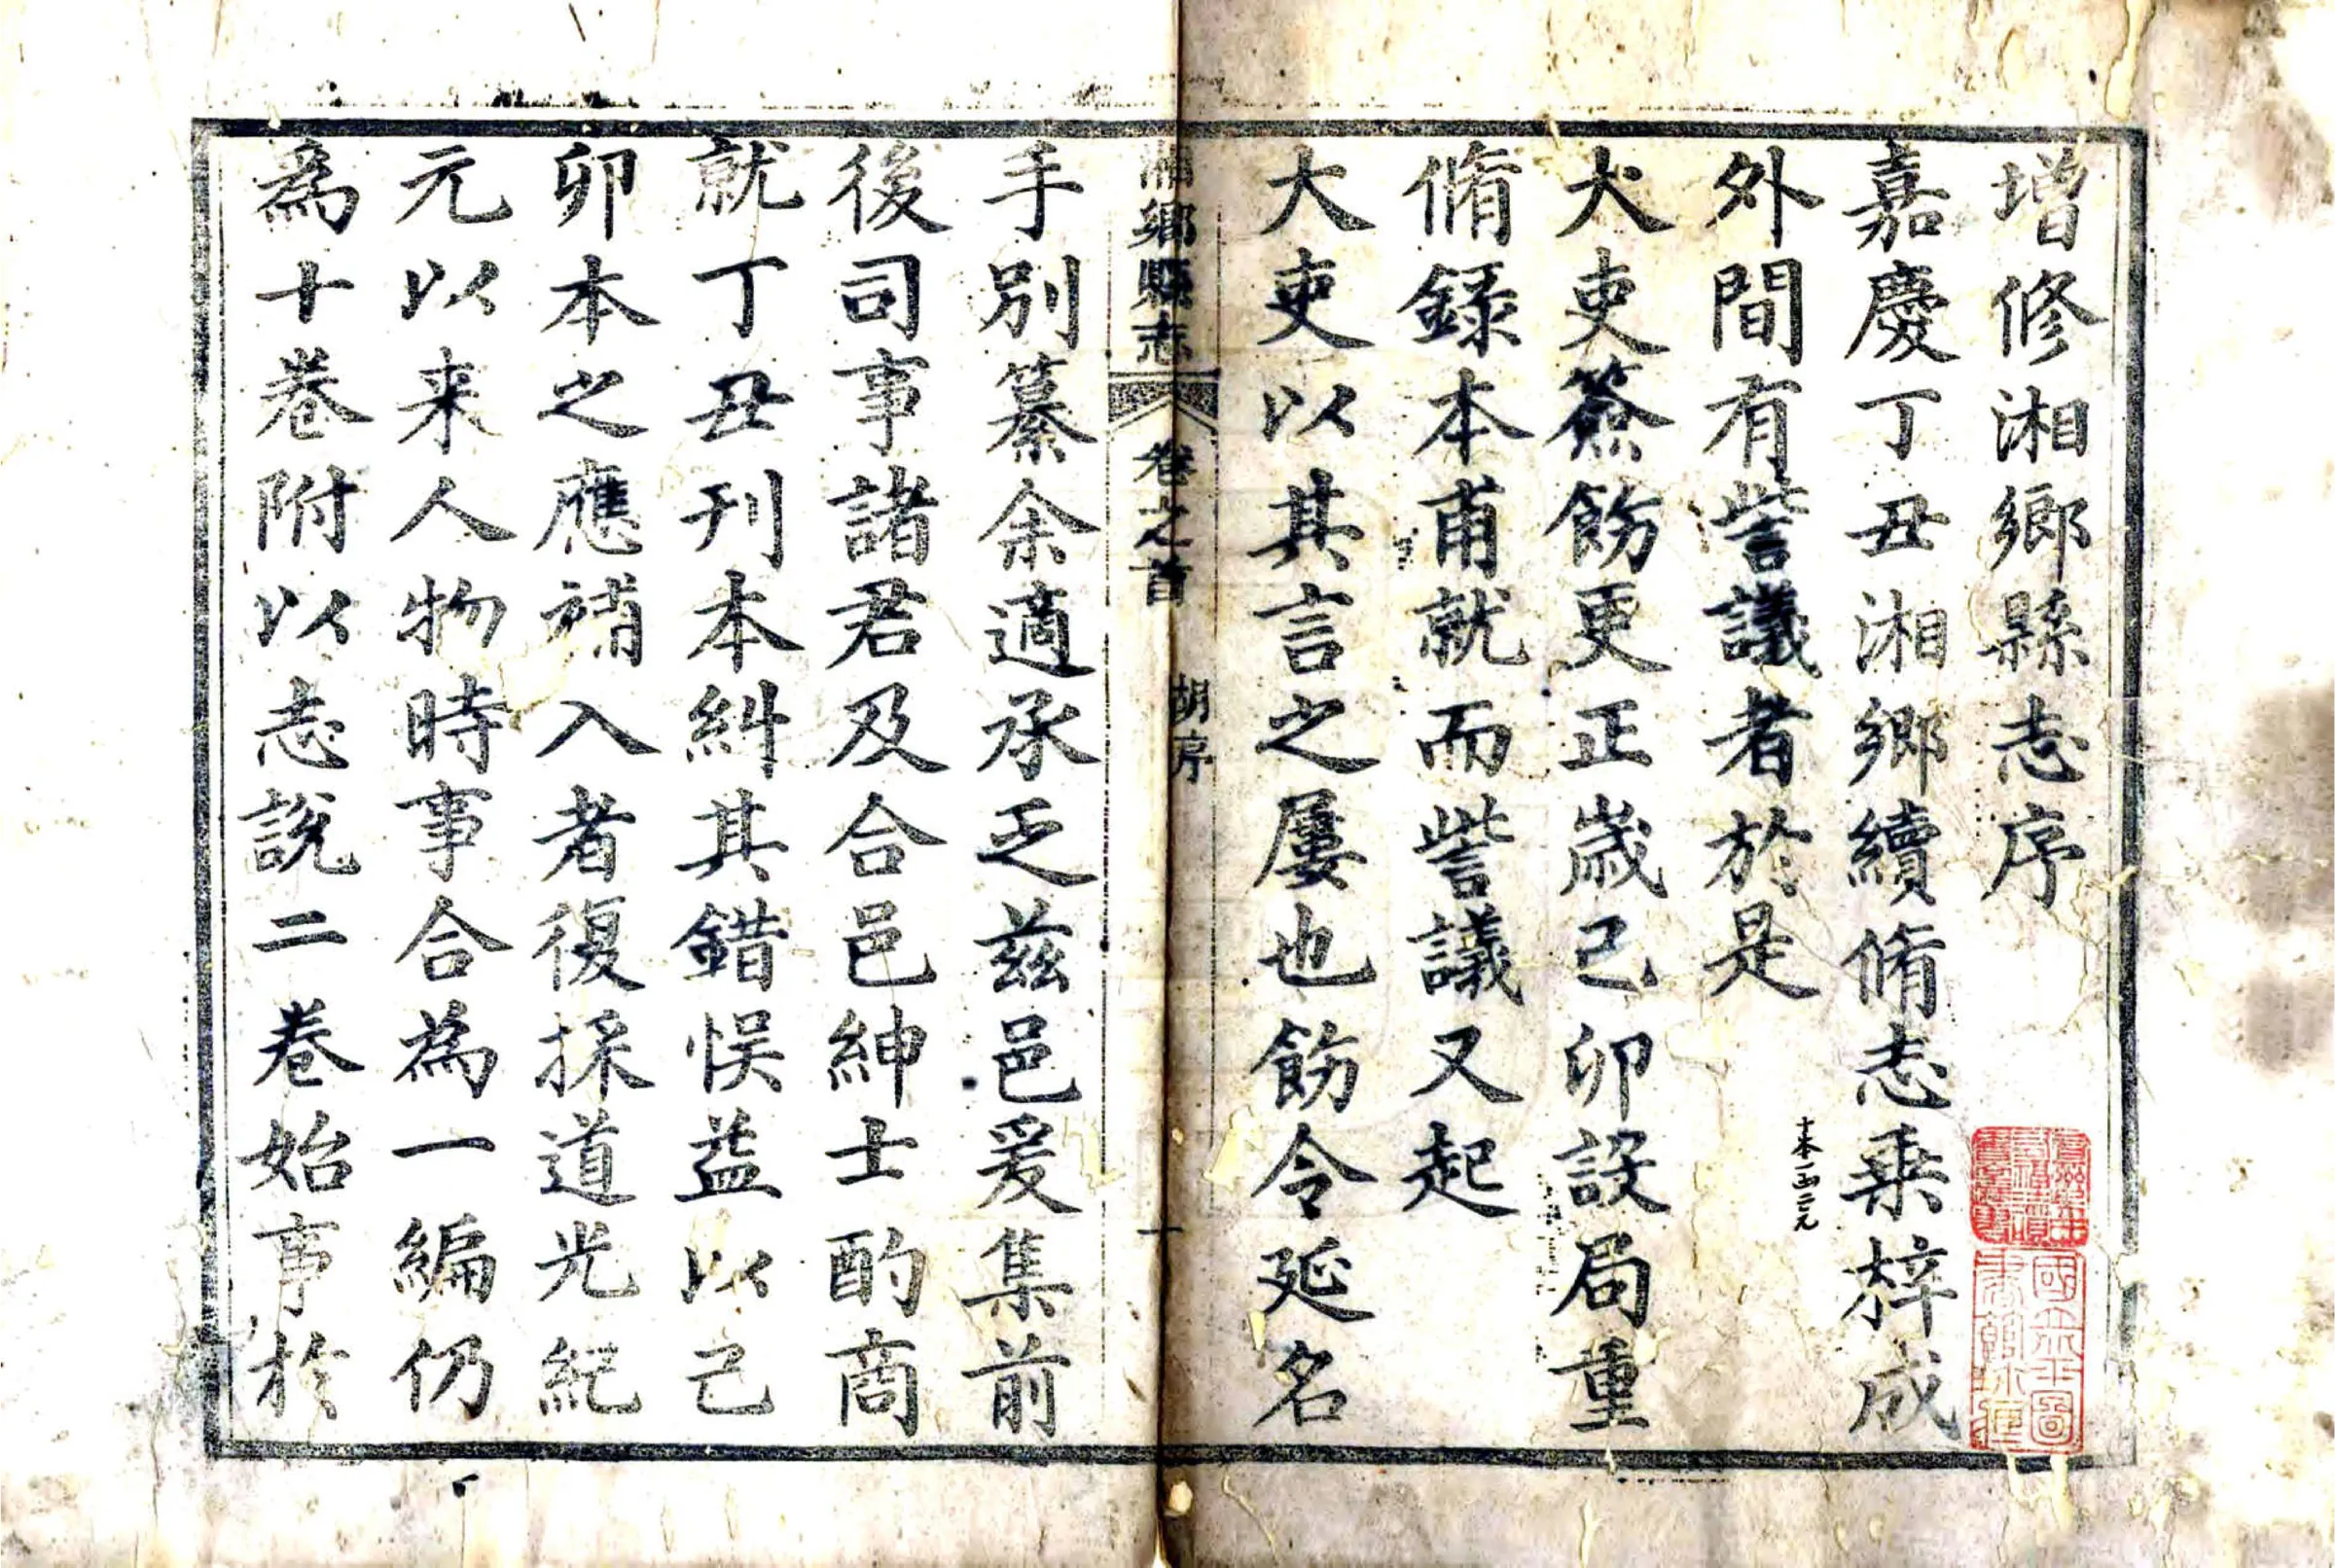 增修湘鄉縣志序
嘉慶丁丑湘鄉續脩志乘梓成
外間有訾議者於是
大吏簽飭更正歲己卯設局重
脩録本甫就而訾議又起
大吏以其言之屢也飭令延名
湘鄉縣志
卷之首
胡序
一
手別纂余適承乏兹邑爰集前
後司事諸君及合邑紳士酌商
就丁丑刊本糾其錯悮益以己
卯本之應補入者復採道光紀
元以来人物時事合為一編仍
為十卷附以志說二卷始事於
十本一函二元
國立北平圖
書館珍藏